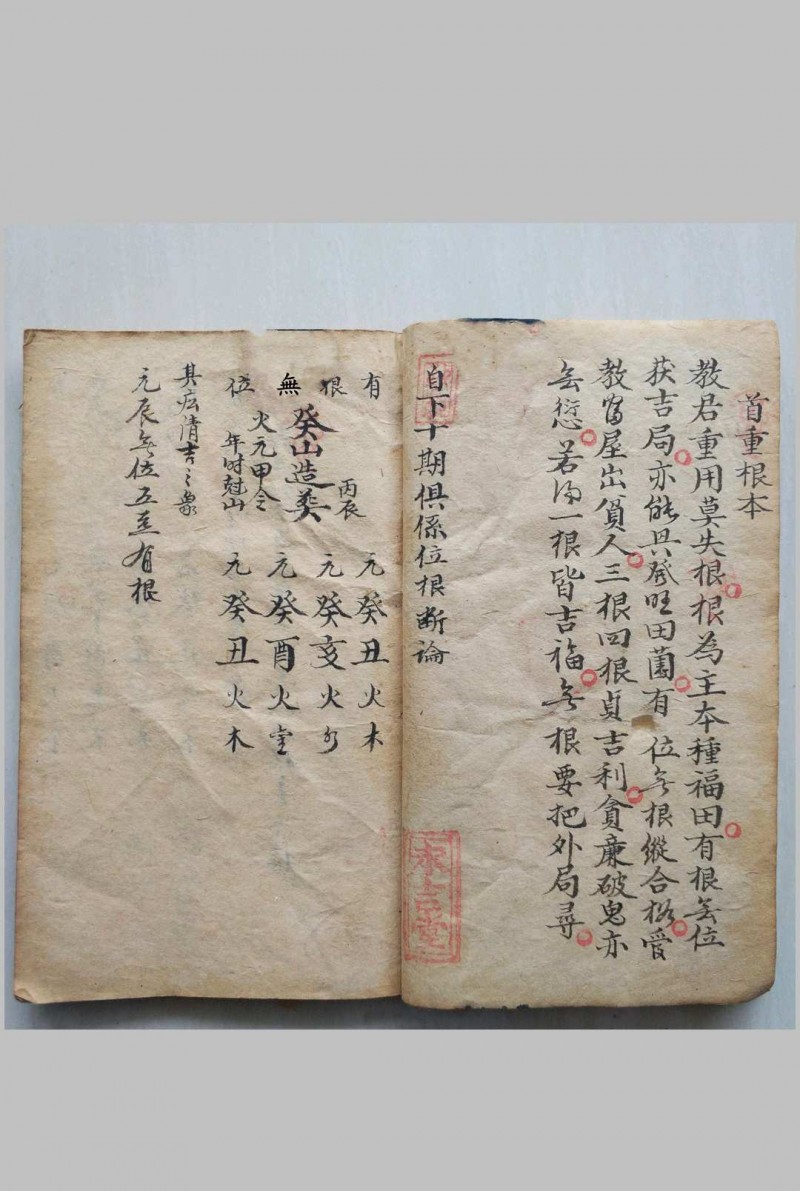 首重根本
教君重用莫失根根為主本種福田有根無位
获吉局亦能共發旺田園有位無根縱合格愛
教富屋出貧人三根四根貞吉利貪廉破鬼亦
無愆若得一根皆吉福無根要把外局尋
自下十期俱係位根断論
有根無位
丙辰
癸山造葵
火元甲会
年时尅山
元癸丑火木
元癸亥火
元癸酉火
元癸丑火木
其宏清吉之象
元辰無位五至有根